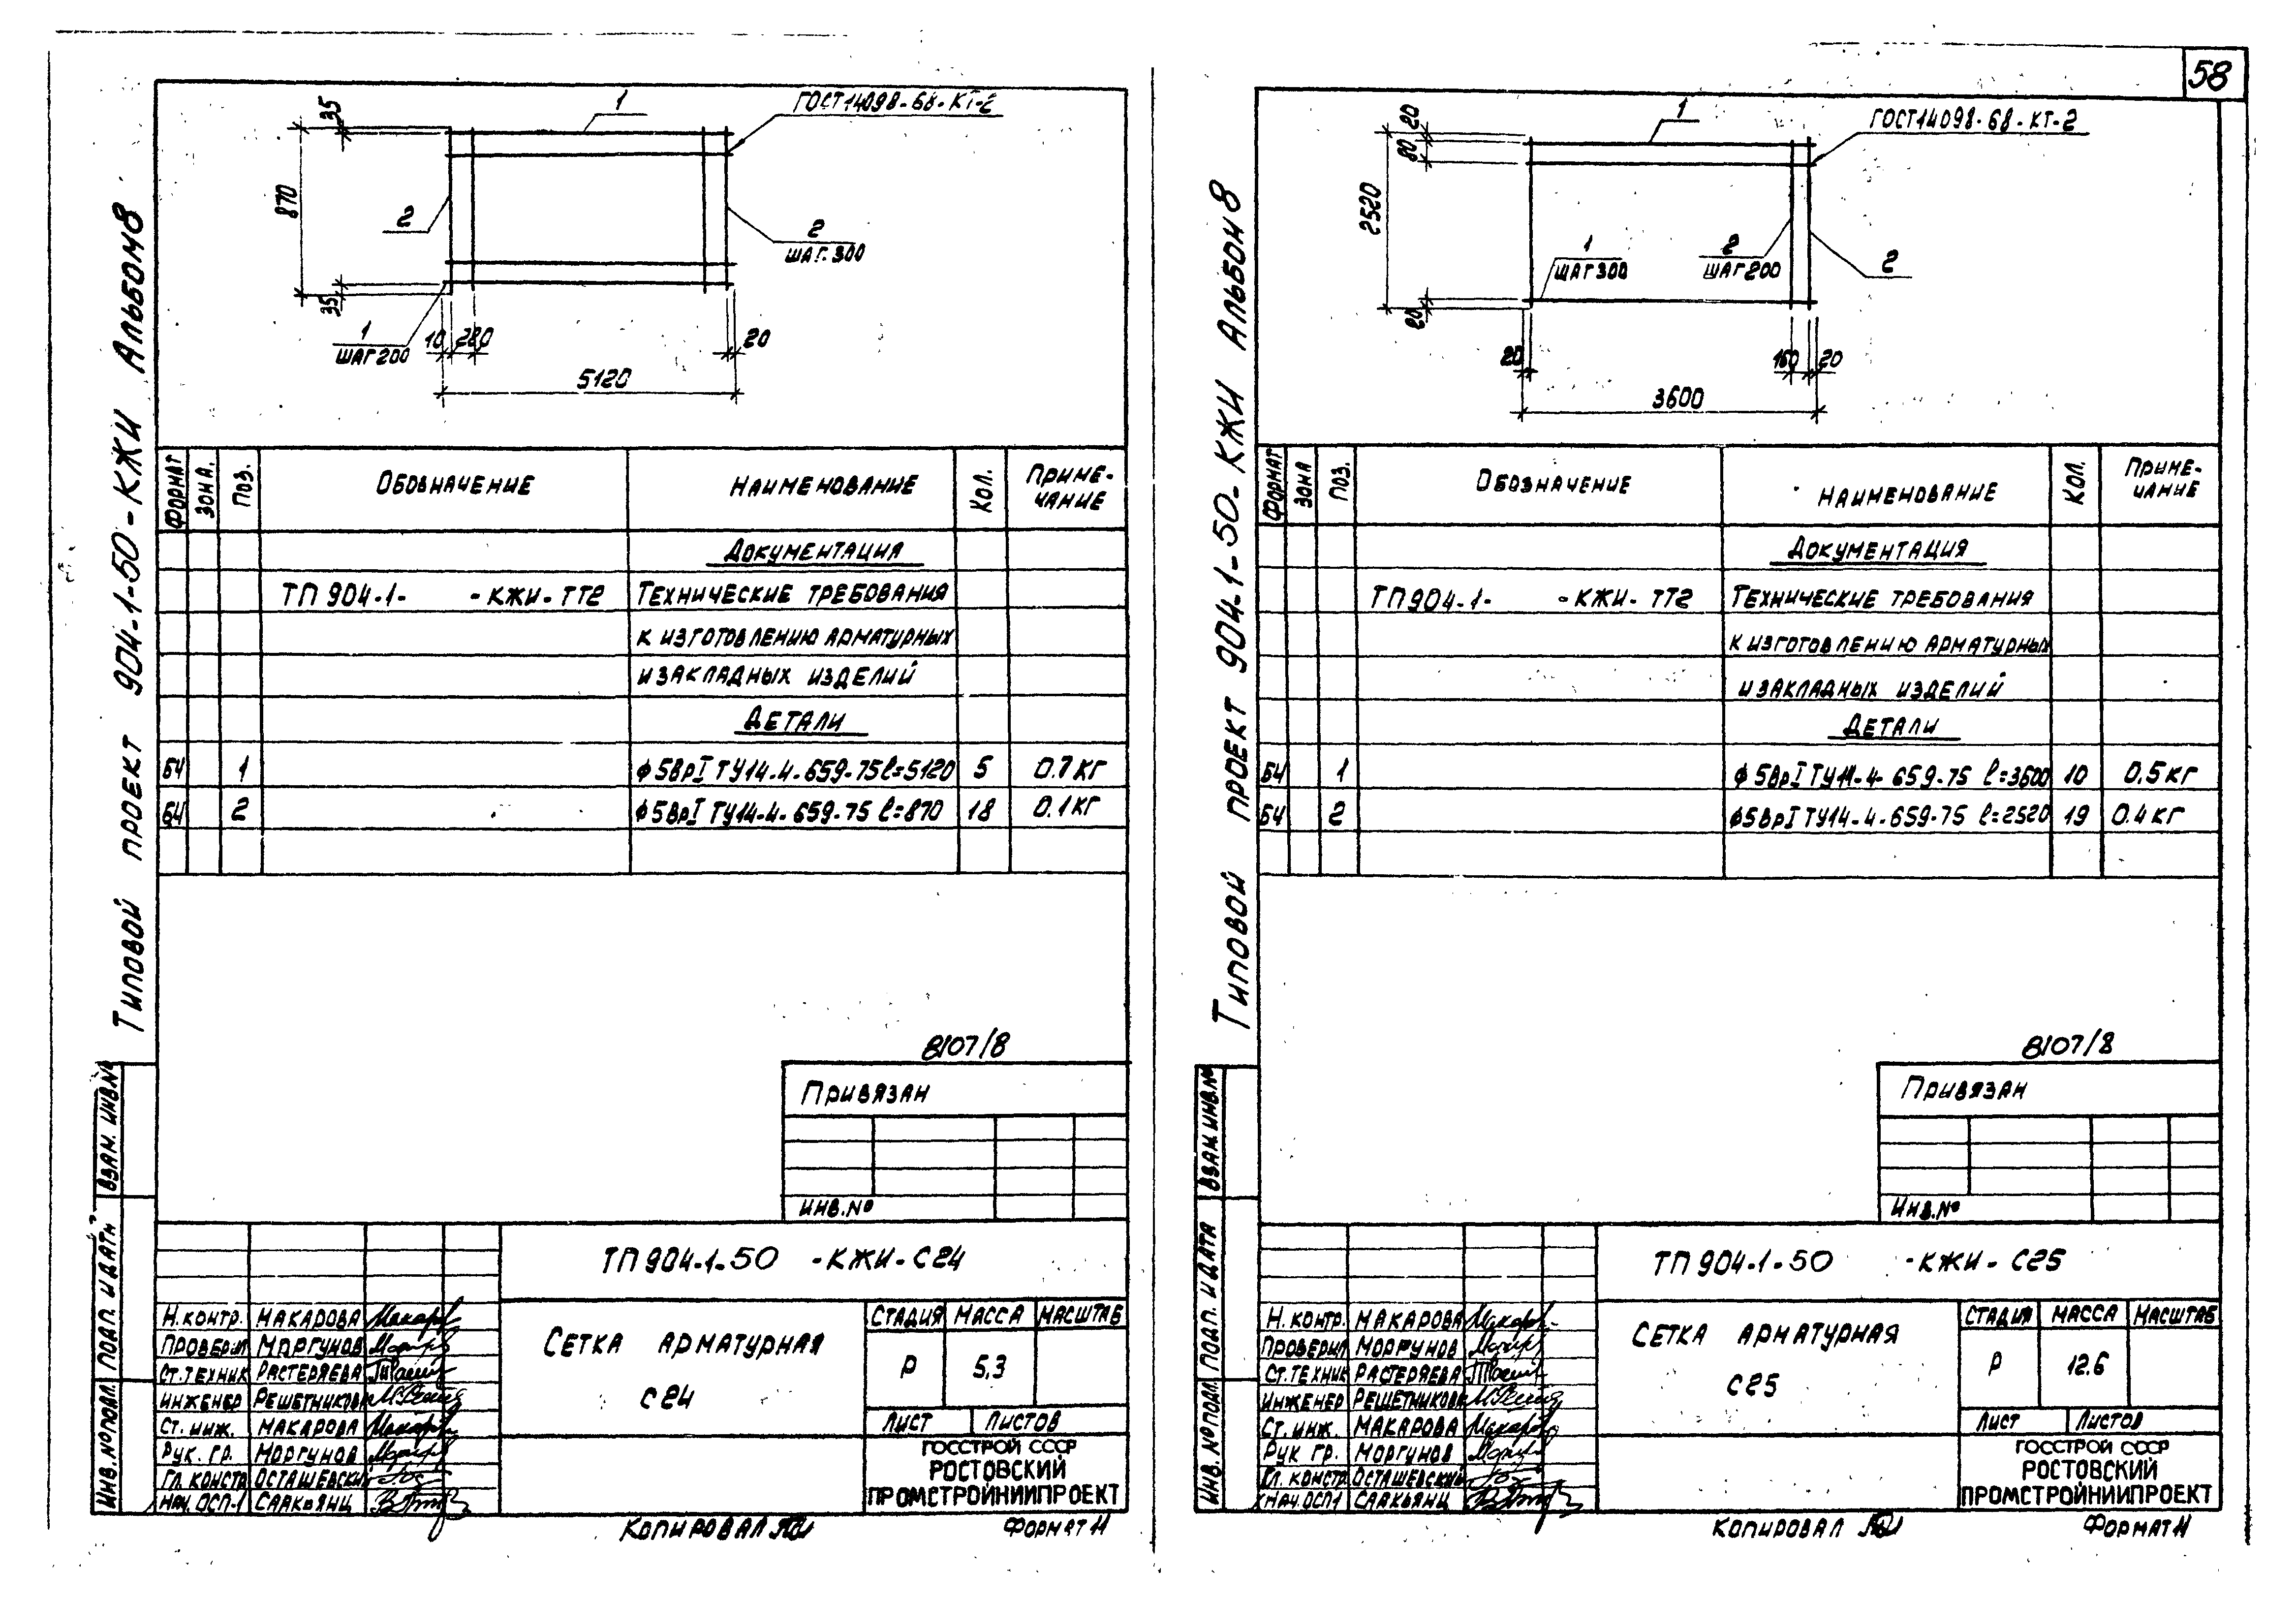 58
Типовой проект 904-1-50-КЖИ Альбом 8
35
1
ГОСТ14098-68-КТ-2
870
2
2
ШАГ 300
35
1
ШАГ 200
10
280
20
5120
ФОРМАТ ЗОНА. ПОЗ. ОБОЗНАЧЕНИЕ НАИМЕНОВАНИЕ КОЛ. ПРИМЕ-
ЧАНИЕ
ДОКУМЕНТАЦИЯ
ТП 904-1- -КЖИ-ТТ2 ТЕХНИЧЕСКИЕ ТРЕБОВАНИЯ
К ИЗГОТОВЛЕНИЮ АРМАТУРНЫХ
И ЗАКЛАДНЫХ ИЗДЕЛИЙ
ДЕТАЛИ
БЧ 1 ф5ВрI ТУ14-4-659-75 ℓ=5120 5 0.7 КГ
БЧ 2 ф5ВрI ТУ14-4-659-75 ℓ=870 18 0.1 КГ
8107/8
ПРИВЯЗАН
ИНВ.№
ВЗАМ. ИНВ.№
ПОДП. И ДАТА
ИНВ.№ ПОДЛ.
ТП 904-1-50 -КЖИ-С24
Н.КОНТР. МАКАРОВА
ПРОВЕРИЛ МОРГУНОВ
СТ.ТЕХНИК РАСТЕРЯЕВА
ИНЖЕНЕР РЕШЕТНИКОВА
СТ. ИНЖ. МАКАРОВА
РУК. ГР. МОРГУНОВ
ГЛ. КОНСТР ОСТАШЕВСКИЙ
НАЧ. ОСП-1 СААКЬЯНЦ
СЕТКА АРМАТУРНАЯ
С24
СТАДИЯ МАССА МАСШТАБ
Р 5,3
ЛИСТ ЛИСТОВ
ГОССТРОЙ СССР
РОСТОВСКИЙ
ПРОМСТРОЙНИИПРОЕКТ
КОПИРОВАЛ
ФОРМАТ 11
Типовой проект 904-1-50-КЖИ Альбом 8
20
80
1
ГОСТ14098-68-КТ-2
2520
1
ШАГ 300
2
ШАГ 200
2
20
20
160
20
3600
ФОРМАТ ЗОНА ПОЗ. ОБОЗНАЧЕНИЕ НАИМЕНОВАНИЕ КОЛ. ПРИМЕ-
ЧАНИЕ
ДОКУМЕНТАЦИЯ
ТП 904-1- -КЖИ-ТТ2 ТЕХНИЧЕСКИЕ ТРЕБОВАНИЯ
К ИЗГОТОВЛЕНИЮ АРМАТУРНЫХ
И ЗАКЛАДНЫХ ИЗДЕЛИЙ
ДЕТАЛИ
БЧ 1 ф5ВрI ТУ14-4-659-75 ℓ=3600 10 0.5 КГ
БЧ 2 ф5ВрI ТУ14-4-659-75 ℓ=2520 19 0.4 КГ
8107/8
ПРИВЯЗАН
ИНВ.№
ВЗАМ.ИНВ.№
ПОДП. И ДАТА
ИНВ.№ ПОДЛ.
ТП 904-1-50 -КЖИ-С25
Н.КОНТР. МАКАРОВА
ПРОВЕРИЛ МОРГУНОВ
СТ.ТЕХНИК РАСТЕРЯЕВА
ИНЖЕНЕР РЕШЕТНИКОВА
СТ. ИНЖ. МАКАРОВА
РУК ГР. МОРГУНОВ
ГЛ. КОНСТР ОСТАШЕВСКИЙ
НАЧ.ОСП1 СААКЬЯНЦ
СЕТКА АРМАТУРНАЯ
С25
СТАДИЯ МАССА МАСШТАБ
Р 12.6
ЛИСТ ЛИСТОВ
ГОССТРОЙ СССР
РОСТОВСКИЙ
ПРОМСТРОЙНИИПРОЕКТ
КОПИРОВАЛ
ФОРМАТ 11